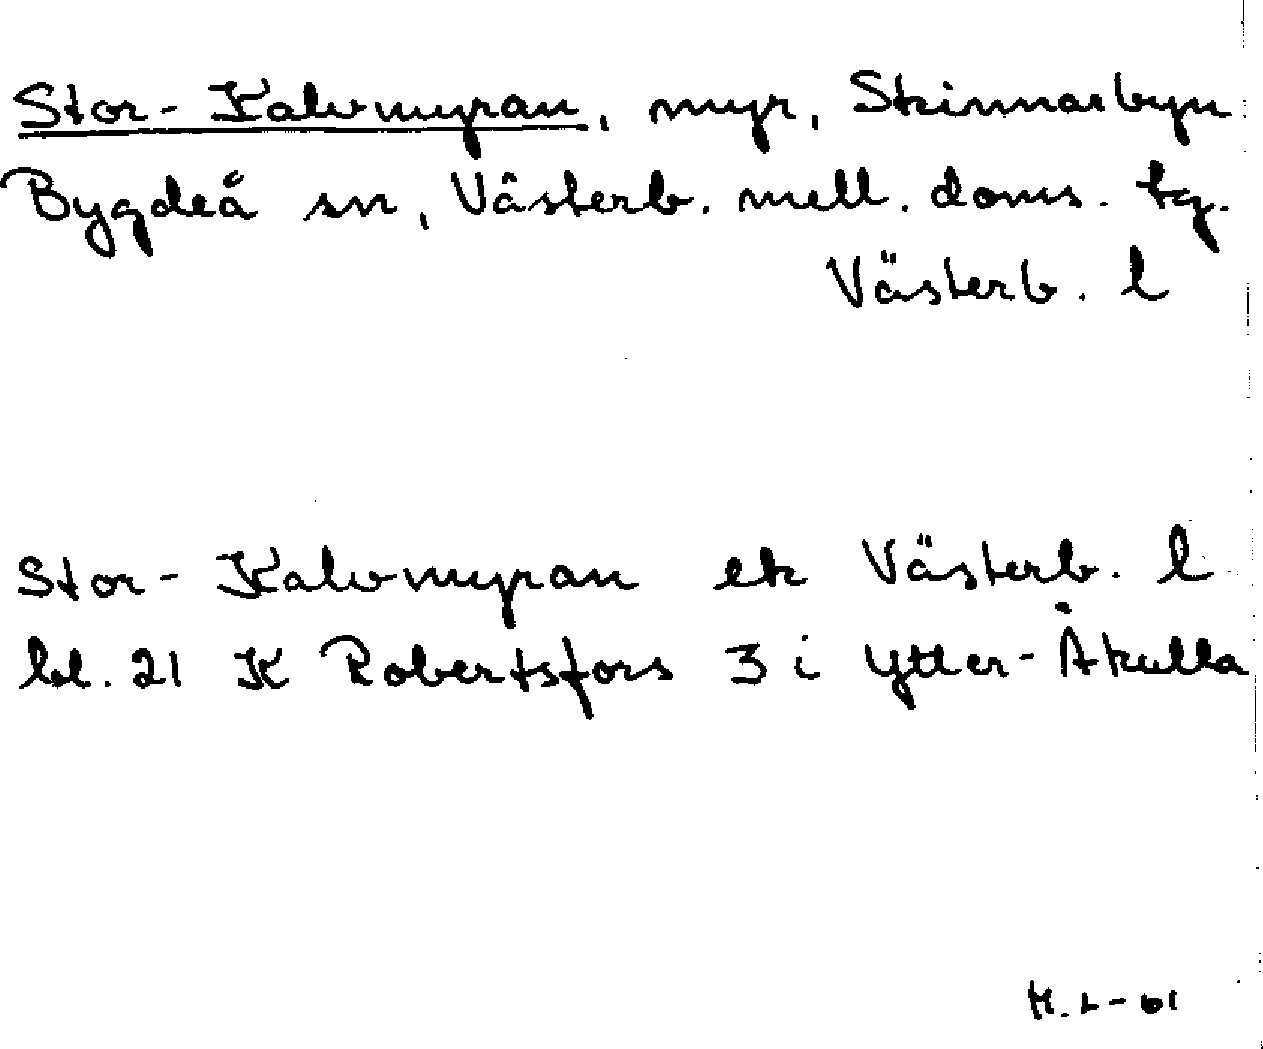 Stor-Kalvmyran, myr, Skinnarbyn
Bygdeå sn, Västerb. mell. doms. tg.
Västerb. l
Stor-Kalvmyran ek Västerb. l
bl. 21 K Robertsfors 3 i Ytter-Åkulla
M.L-61